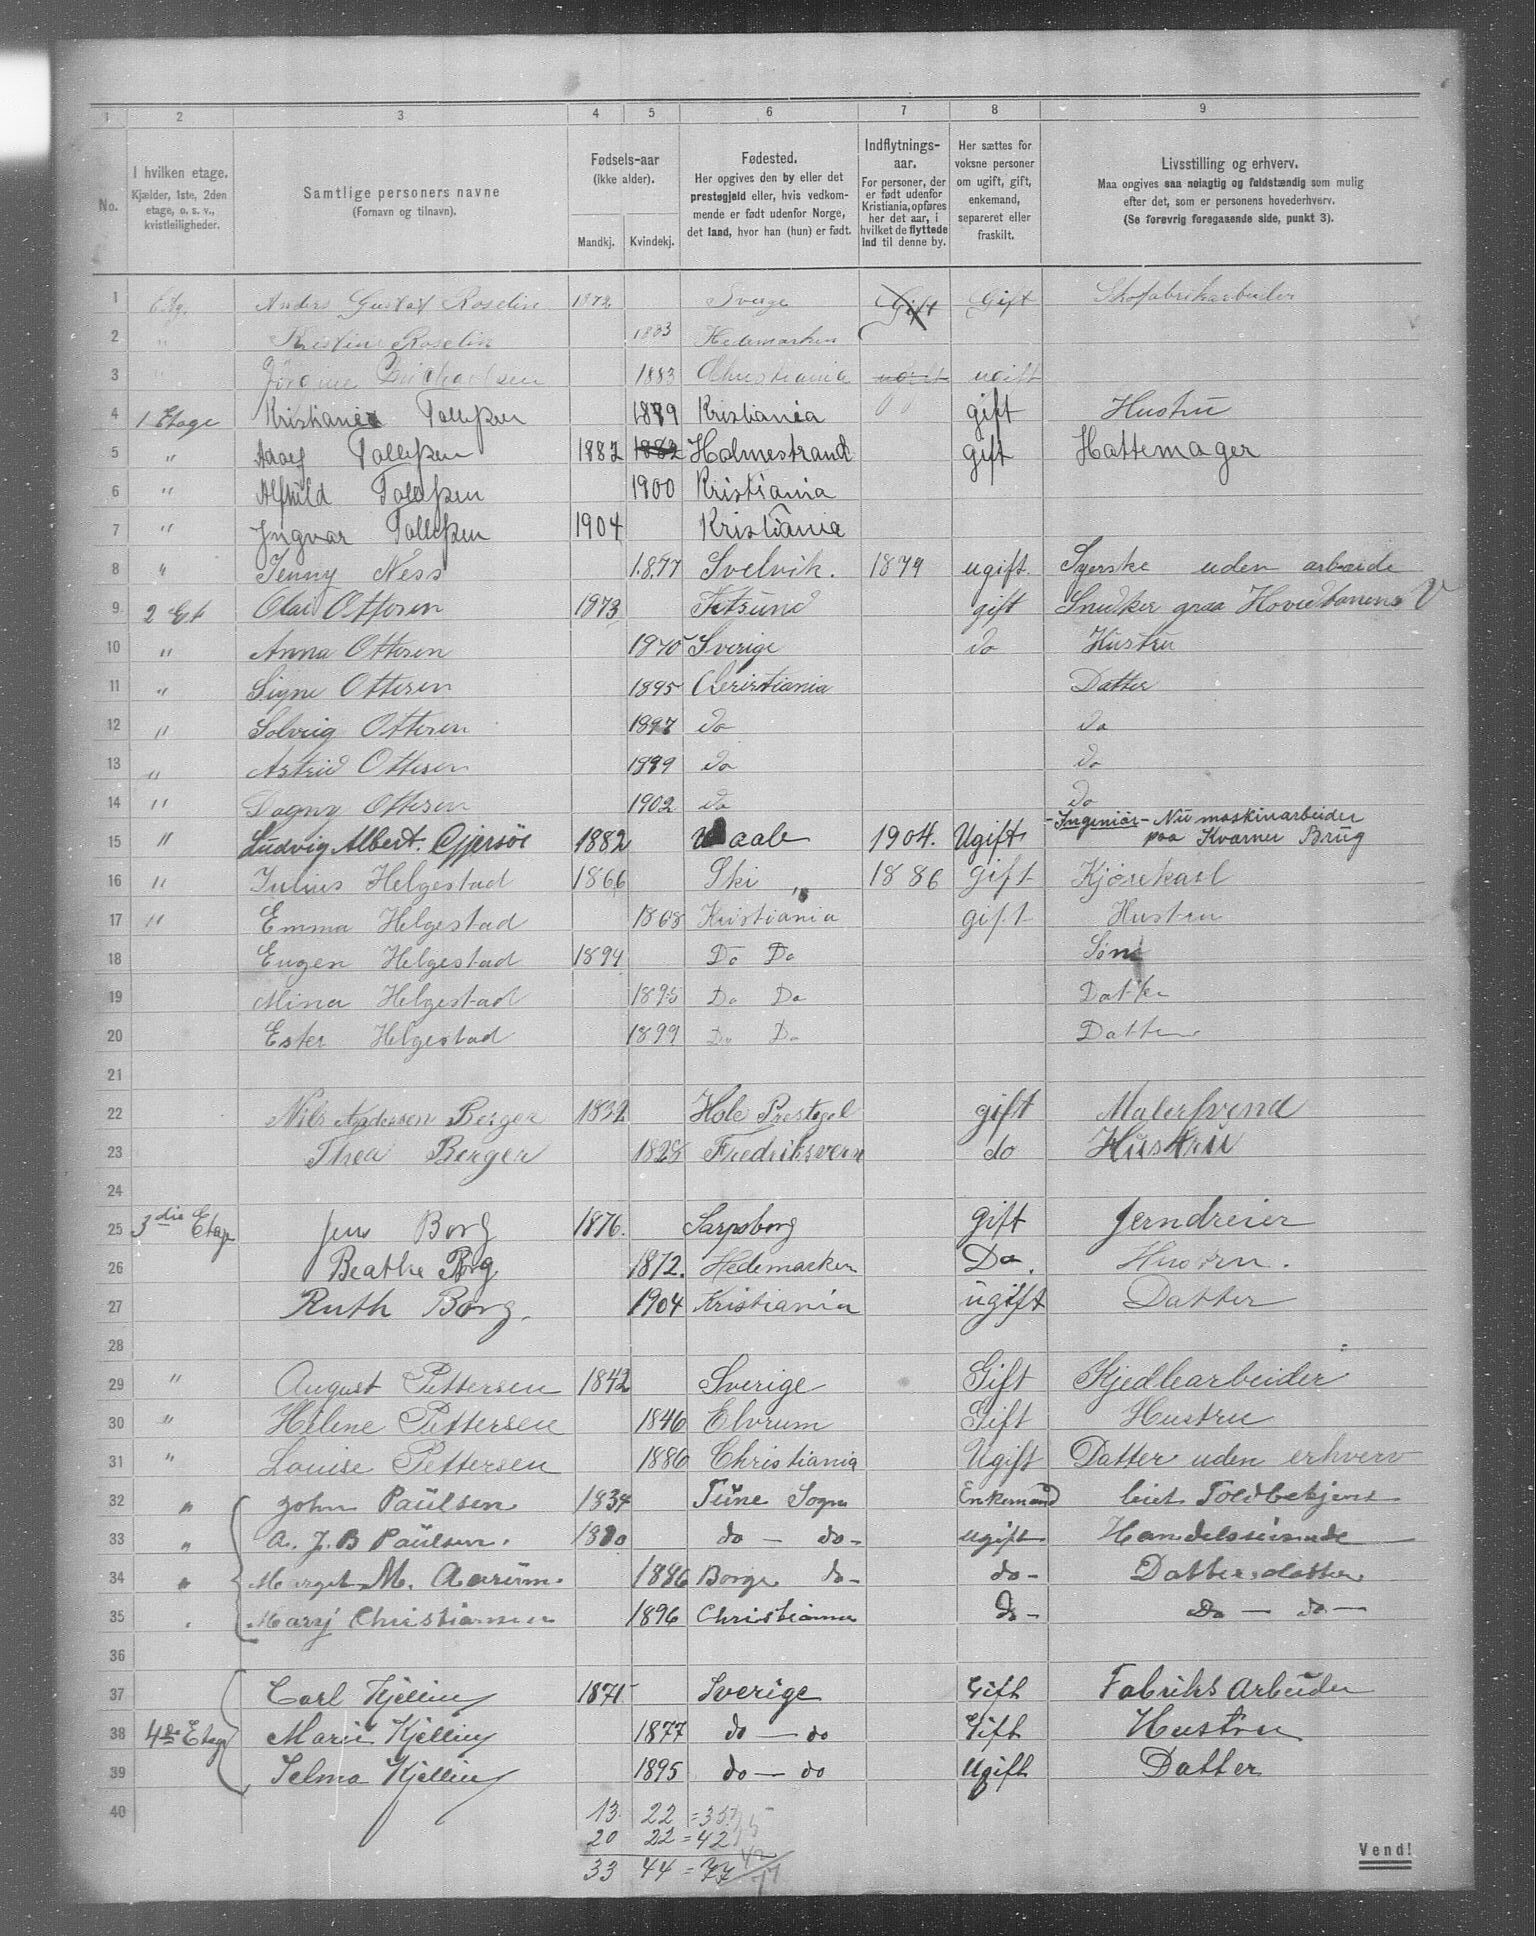 1 2 3 4 5 6 7 8 9
No.
I hvilken etage.
Kjælder, 1ste, 2den etage, o. s. v., kvistleiligheder.
Samtlige personers navne
(Fornavn og tilnavn).
Fødsels-aar
(ikke alder).
Mandkj. Kvindekj.
Fødested.
Her opgives den by eller det prestegjeld eller, hvis vedkommende er født udenfor Norge, det land, hvor han (hun) er født.
Indflytningsaar.
For personer, der er født udenfor Kristiania, opføres her det aar, i hvilket de flyttede ind til denne by.
Her sættes for voksne personer om ugift, gift, enkemand, separeret eller fraskilt.
Livsstilling og erhverv.
Maa opgives saa nøiagtig og fuldstændig som mulig efter det, som er personens hovederhverv.
(Se forøvrig foregaaende side, punkt 3).
1 Etg. Anders Gustaf Roselin 1872 Sverge Gift Gift Skofabrikarbeider
2 " Kristine Roselin 1883 Hedemarken
3 " 1883 Christiania ugift ugift
4 1 Etage Kristiane Tollefsen 1879 Kristiania gift Hustru
5 " Tollefsen 1882 1882 Holmestrand gift Hattemager
6 " Alfhild Tollefsen 1900 Kristiania
7 " Ingvar Tollefsen 1904 Kristiania
8 " Jenny Ness 1877 Svelvik. 1879 ugift. Syerske uden arbeide
9 2 Et Olai Ottesen 1873 Fetsund gift Snedker Hovedbanens V
10 " Anna Ottesen 1870 Sverige do Hustru
11 " Signe Ottesen 1895 Christiania Datter
12 " Solveig Ottesen 1897 do do
13 " Astrid Ottesen 1899 do do
14 " Dagny Ottesen 1902 do do
15 " Ludvig Albert. Gjersøe 1882 Vaale 1904. Ugift -Ingeniør- Nu maskinarbeider
paa Kværner Brug
16 " Julius Helgestad 1866 Ski " 1886 gift Kjørekarl
17 " Emma Helgestad 1868 Kristiania gift Hustru
18 Eugen Helgestad 1894 Do Do Søn
19 Mina Helgestad 1895 Do Do Datter
20 Ester Helgestad 1899 Do Do Datter
21
22 Nils Andersen Berger 1832 Hole Prestegel gift Malersvend
23 Thea Berger 1828 Fredriksvern do Hustru
24
25 3die Etage Jens Borg 1876. Sarpsborg gift Jerndreier
26 Beathe Borg 1872. Hedemarken Do. Hustru.
27 Ruth Borg. 1904 Kristiania ugift Datter
28
29 " August Pettersen 1842 Sverige Gift Kjedlearbeider
30 " Helene Pettersen 1846 Elvrum Gift Hustru
31 " Louise Pettersen 1886 Christiania Ugift Datter uden erhverv
32 " John Paulsen 1834 Tune Sogn Enkemand Toldbetjent
33 " A. J. B Paulsen. 1880 do — do - ugift
34 " Marget M. 1886 Borge do - do - Datterdatter
35 Mary Christiansen 1896 Christiania do - Do — do —
36
37 Carl Kjellin 1871 Sverige Gift Fabriks Arbeider
38 4de Etage Marie Kjellin 1877 do — do Gift Hustru
39 Selma Kjellin 1895 do — do Ugift Datter
40
13 22 = 35
20 22 = 42
33 44 = 77
Vend!